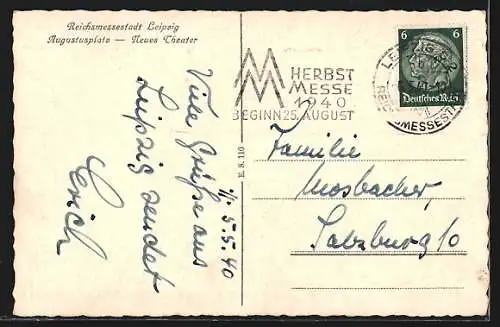 Reichsmessestadt Leipzig
Augustusplatz — Neues Theater
HERBST
MESSE
1940
BEGINN 25. AUGUST
6 6
Deutsches Reich
E. S. 110
5.5.40
Viele Grüße aus
Leipzig sendet
Erich
Familie
Mosbacher,
Salzburg/O